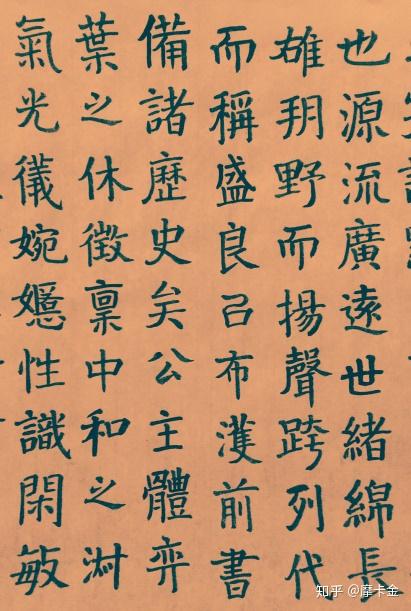 也源流廣遠世緒綿長
雄朔野而揚聲跨列代
而稱盛良㠯布濩前書
備諸歷史矣公主體弈
葉之休徵稟中和之淑
氣光儀婉嫕性識閑敏
知乎 @摩卡金